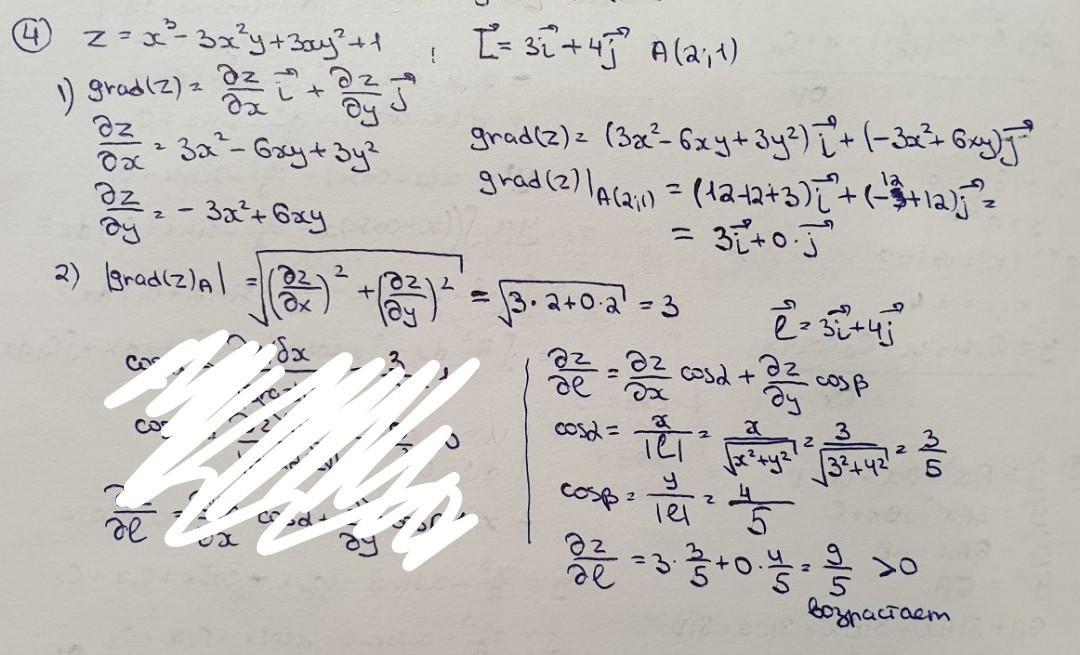 ④ z = x³ - 3x²y + 3xy² + 1 ; l⃗ = 3i⃗ + 4j⃗ A(2;1)
1) grad(z) = ∂z/∂x i⃗ + ∂z/∂y j⃗
∂z/∂x = 3x² - 6xy + 3y²
∂z/∂y = - 3x² + 6xy
grad(z) = (3x² - 6xy + 3y²) i⃗ + (-3x² + 6xy) j⃗
grad(z)|A(2;1) = (12-12+3) i⃗ + (-12+12) j⃗ =
= 3i⃗ + 0·j⃗
2) |grad(z)A| = √((∂z/∂x)² + (∂z/∂y)²) = √(3·2+0·2) = 3
l⃗ = 3i⃗ + 4j⃗
∂z/∂l = ∂z/∂x cosα + ∂z/∂y cosβ
cosα = x/|l| = x/√(x²+y²) = 3/√(3²+4²) = 3/5
cosβ = y/|l| = 4/5
∂z/∂l = 3·3/5 + 0·4/5 = 9/5 >0
возрастает